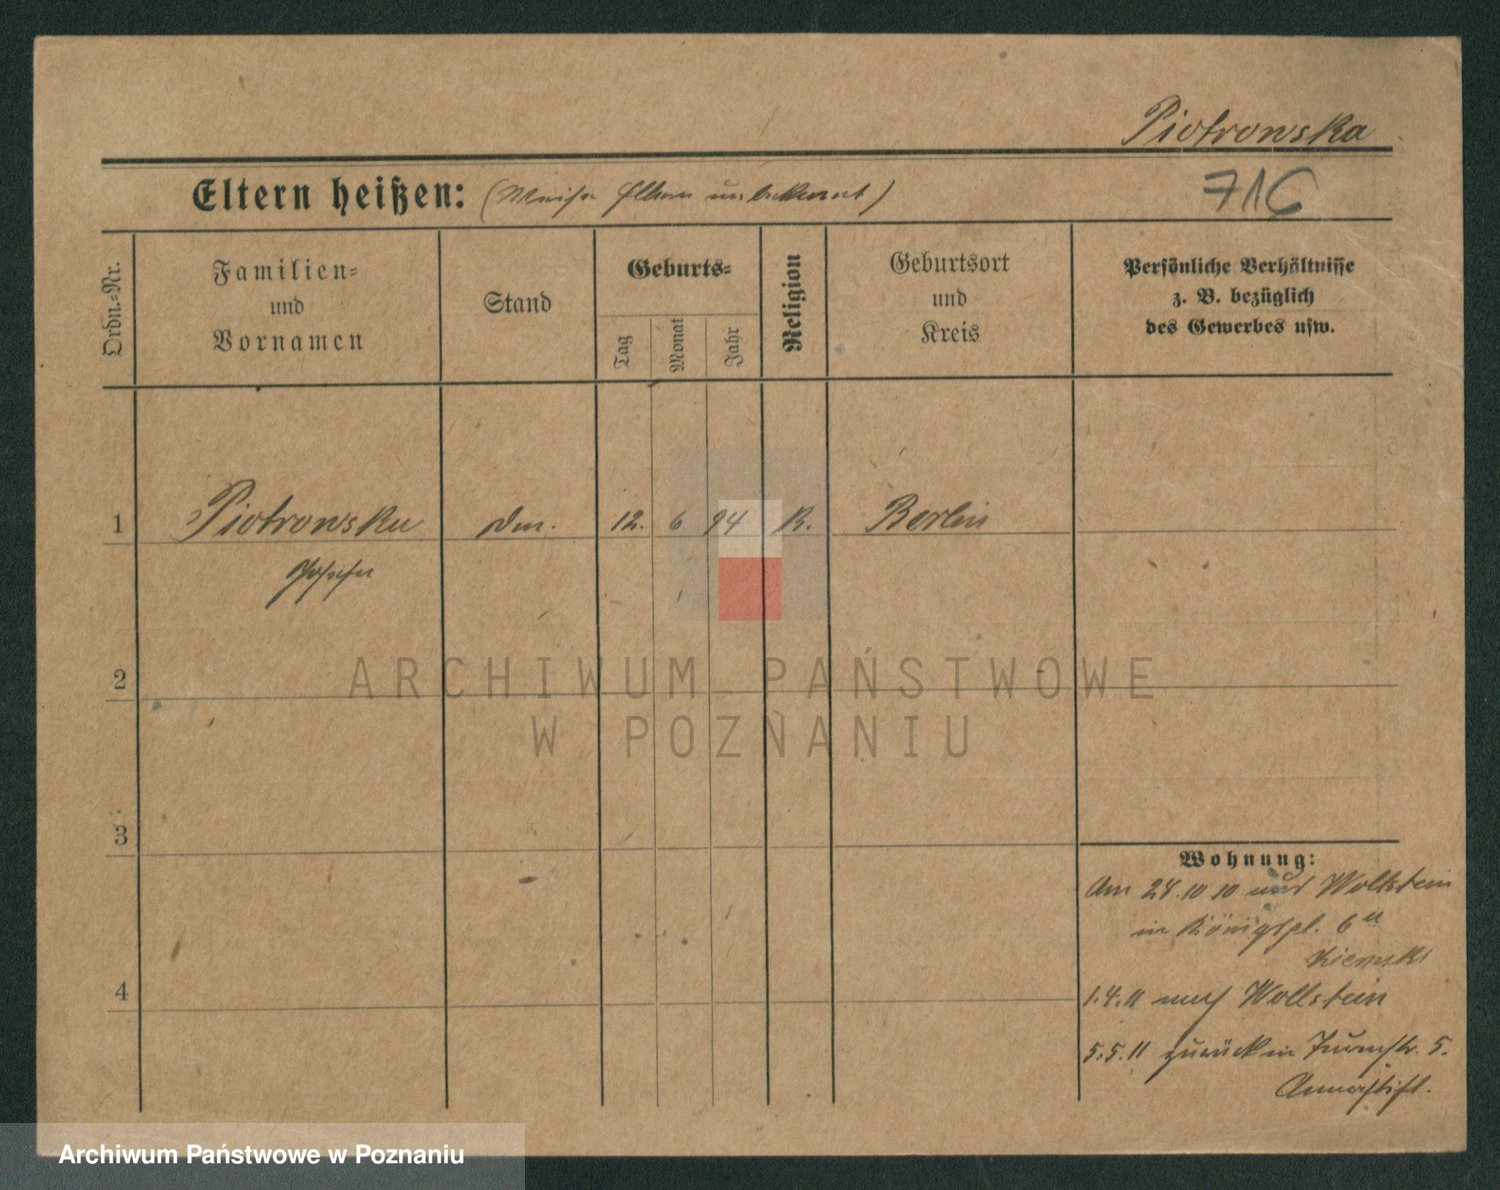 Piotrowska
Eltern heißen: (Waise Eltern unbekannt)
716
Ordn.=Nr.
Familien=
und
Vornamen
Stand
Geburts=
Tag
Monat
Jahr
Religion
Geburtsort
und
Kreis
Persönliche Verhältnisse
z. B. bezüglich
des Gewerbes usw.
1 Piotrowska 12. 6 94 K. Berlin
2
3
4
Wohnung:
Am 24.10 10 aus Wollstein
in Königspl. 6
1.4.11 nach Wollstein
5.5.11 zurück in Turmstr. 5.
Annastift.
ARCHIWUM PAŃSTWOWE
W POZNANIU
Archiwum Państwowe w Poznaniu